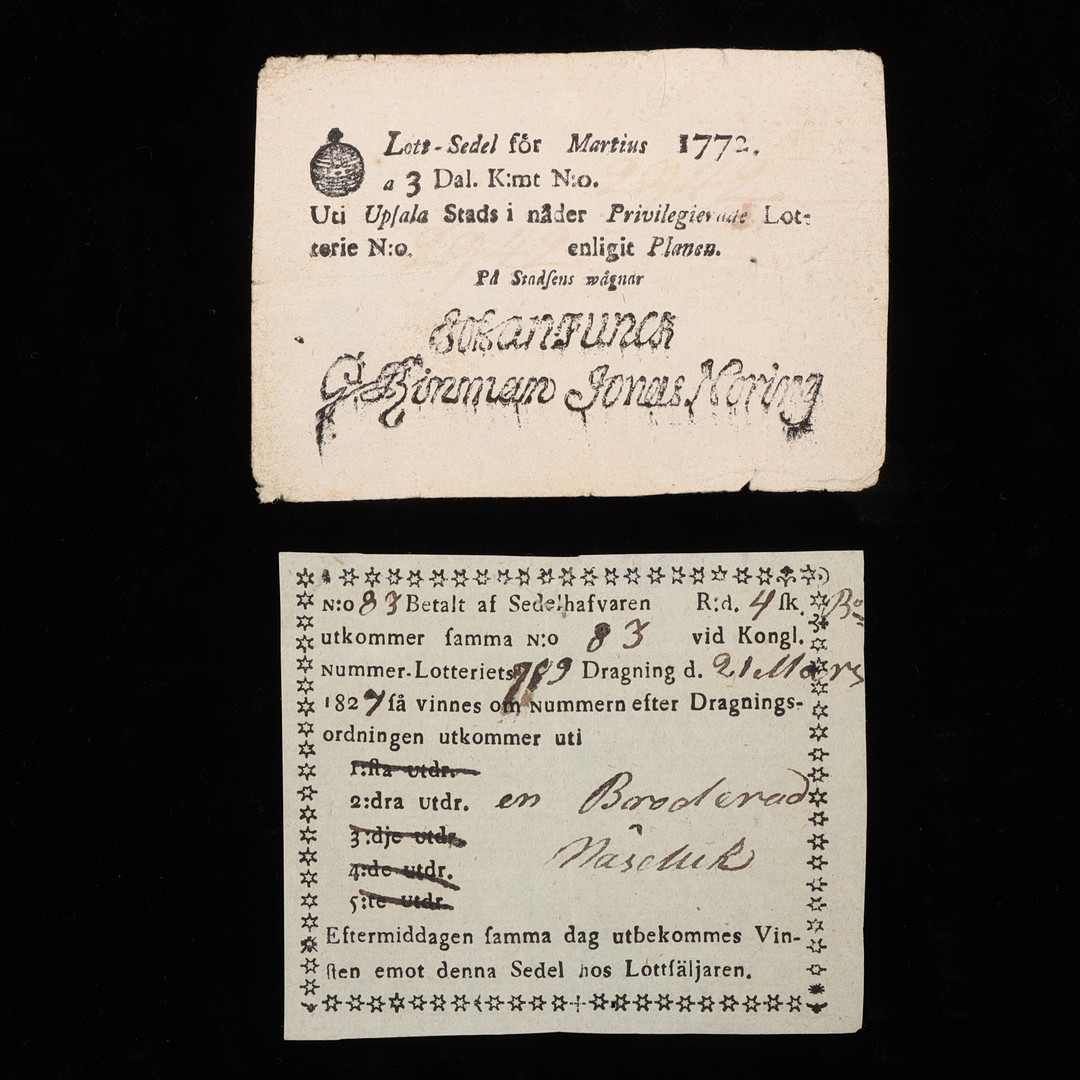 Lott-Sedel för Martius 1772.
a 3 Dal. K:mt N:o.
Uti Upſala Stads i nåder Privilegierade Lot-
terie N:o. enligit Planen.
På Stadſens wägnar
Johan Funck
G. Kinman Jonas Noring
N:o 83 Betalt af Sedelhafvaren R:d. 4 ſk. Bo
utkommer ſamma N:o 83 vid Kongl.
Nummer-Lotteriets 789 Dragning d. 21 Mars
1827 få vinnes om Nummern efter Dragnings-
ordningen utkommer uti
1:ſta utdr.
2:dra utdr. en Broderad
3:dje utdr. Näsduk
4:de utdr.
5:te utdr.
Eftermiddagen ſamma dag utbekommes Vin-
ſten emot denna Sedel hos Lottſäljaren.